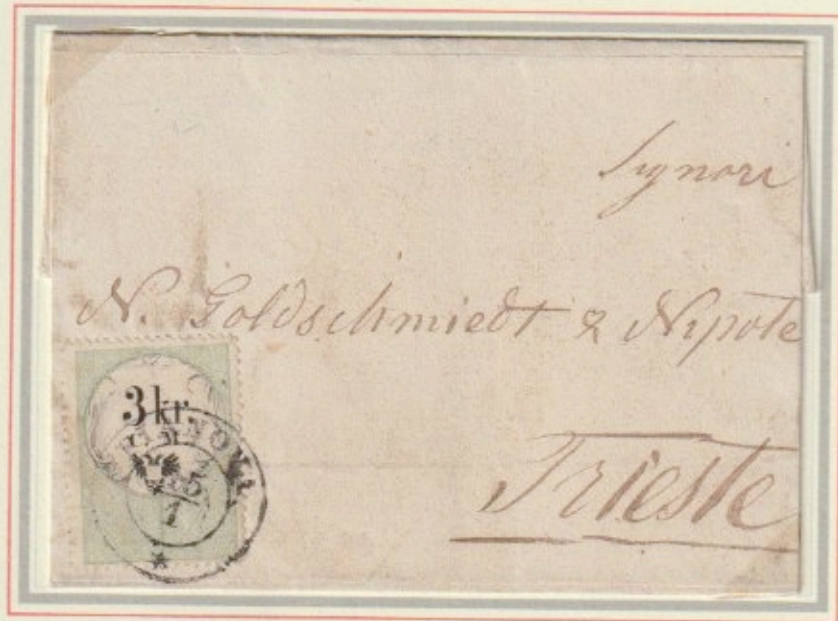 Signori
N. Goldschmiedt & Nipote
Trieste
3 kr.